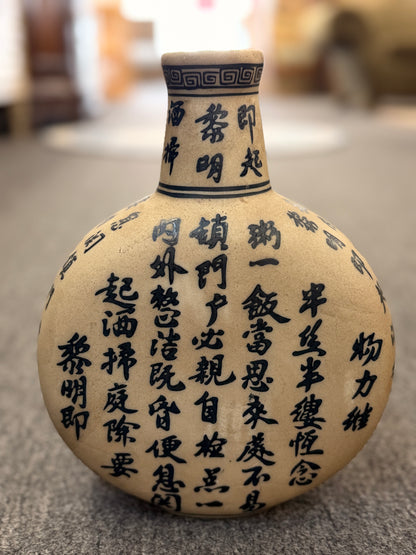 黎明
即起
洒掃
黎明即
起洒掃庭除要
內外整洁既昏便息関
鎖門户必親自檢点一
粥一飯當思來處不易
半絲半縷恆念
物力維